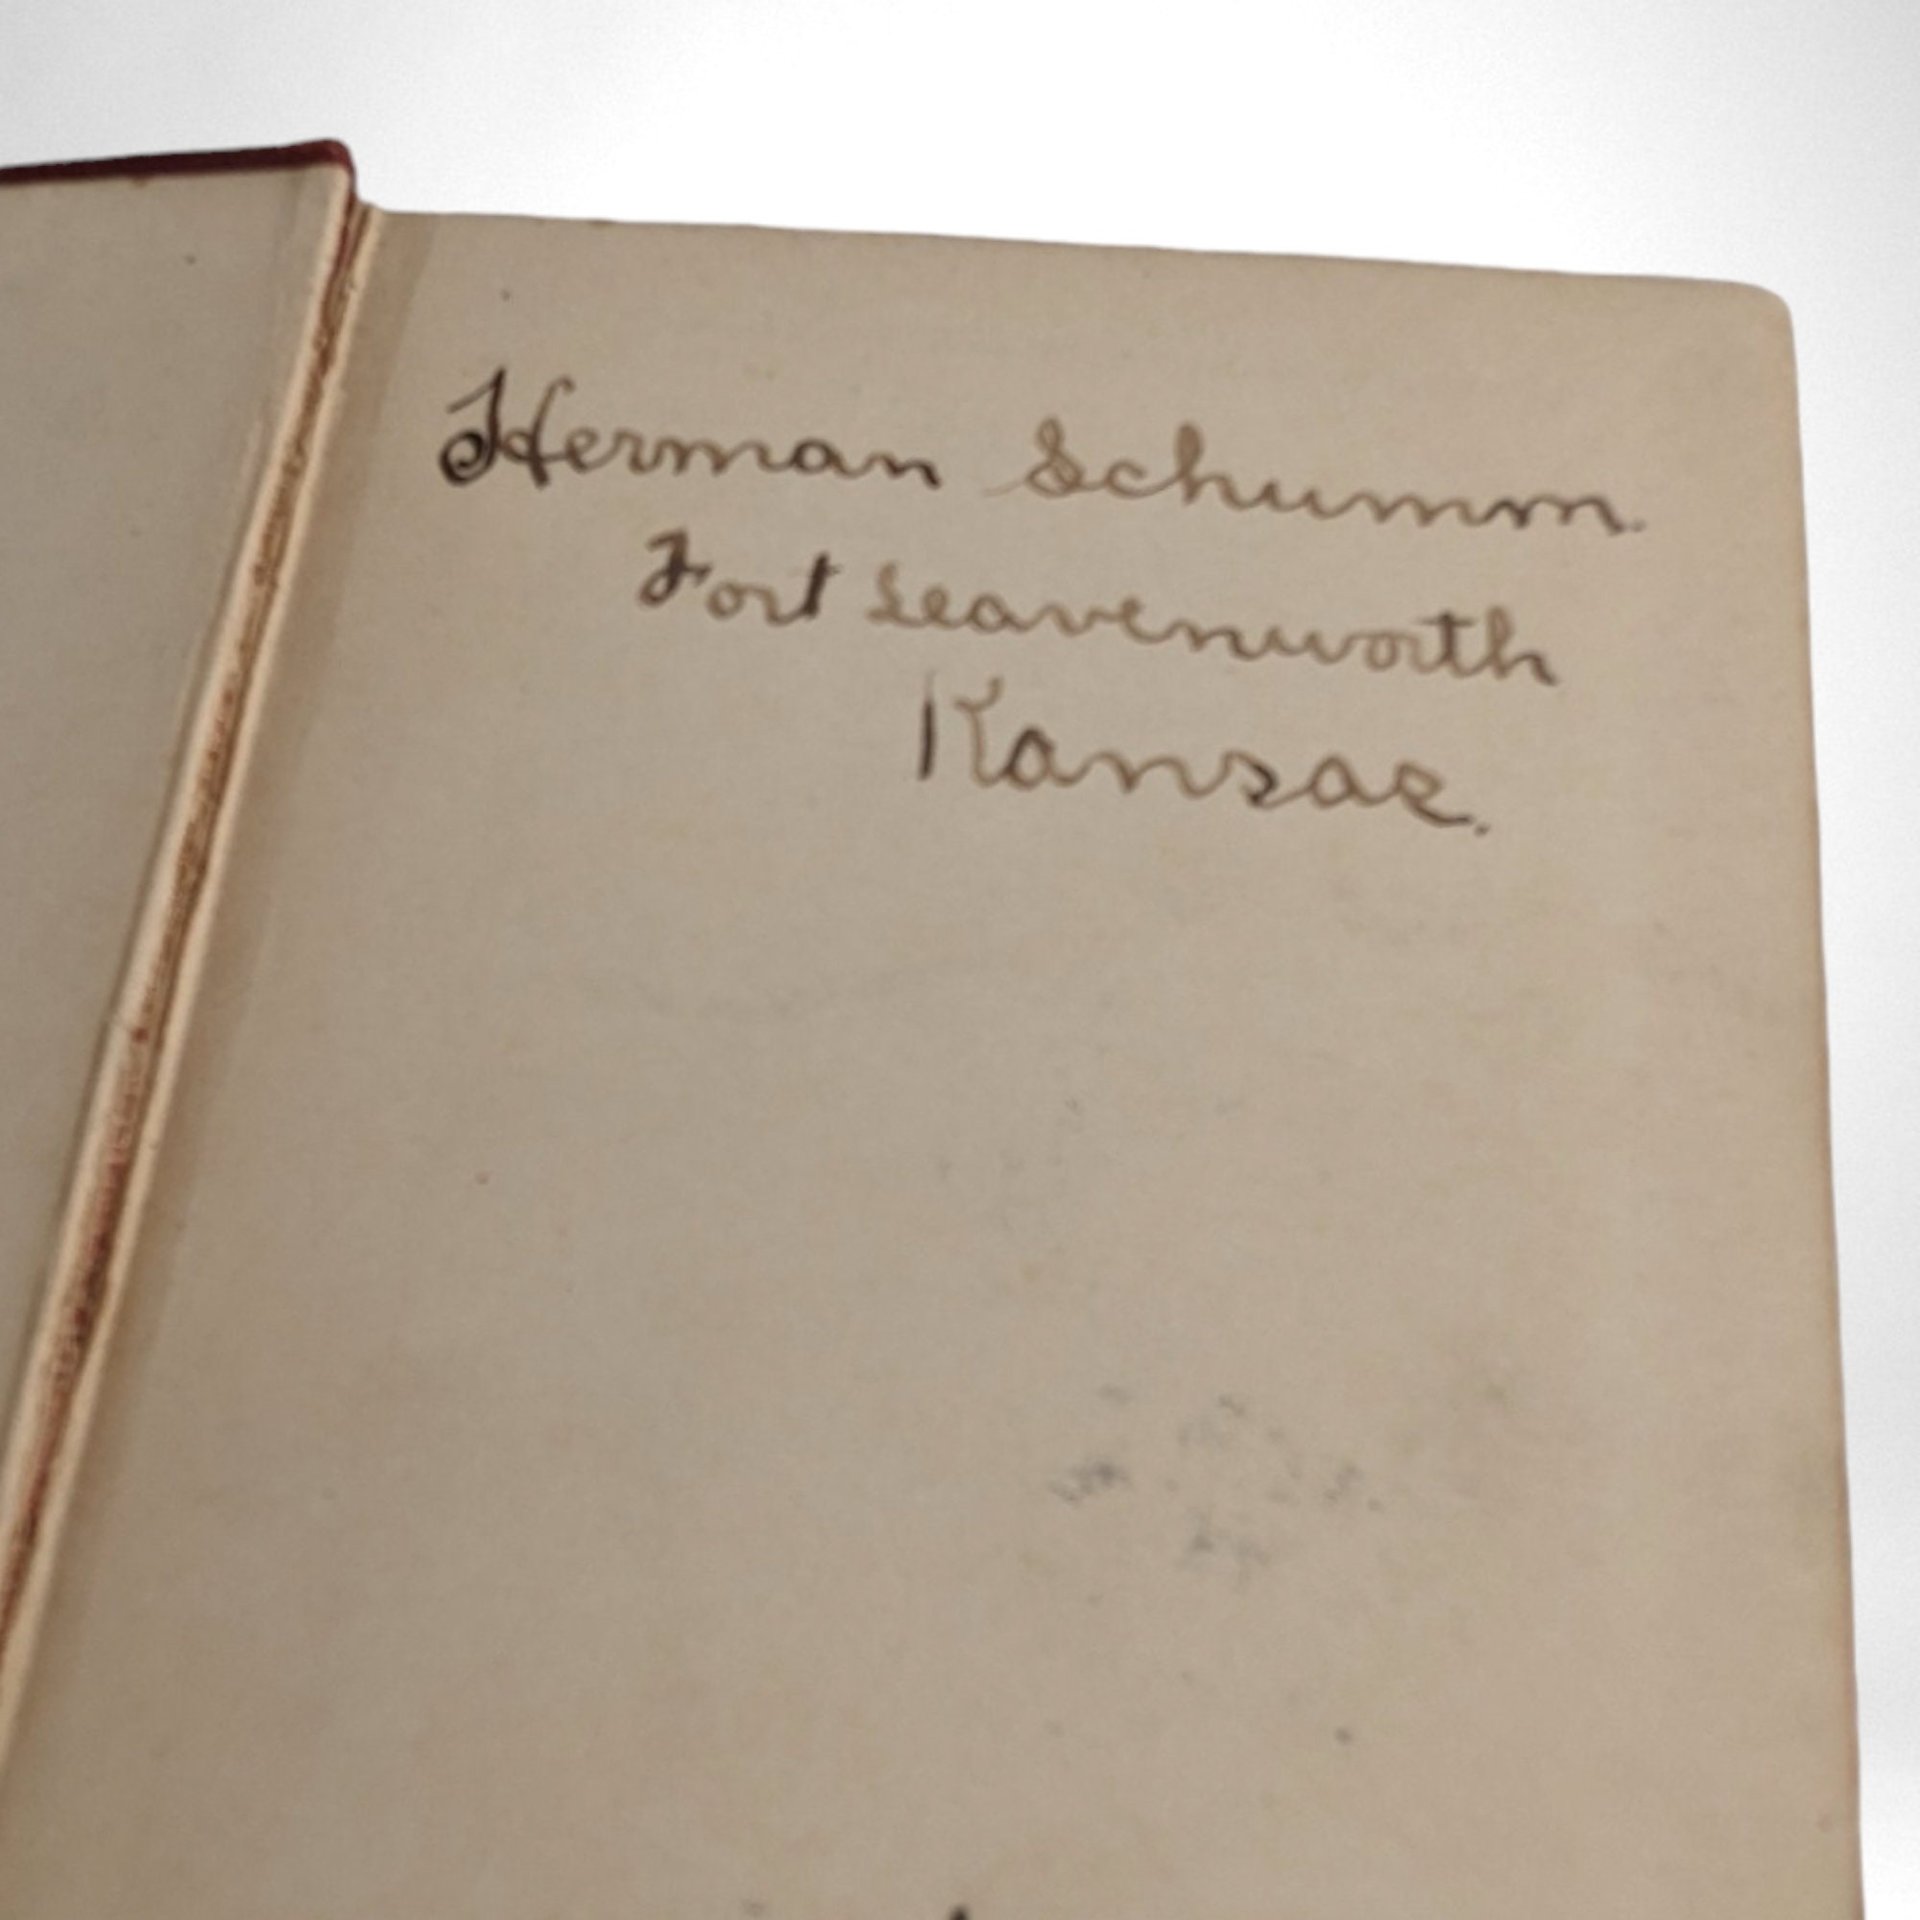 Herman Schumm.
Fort Leavenworth
Kansas.